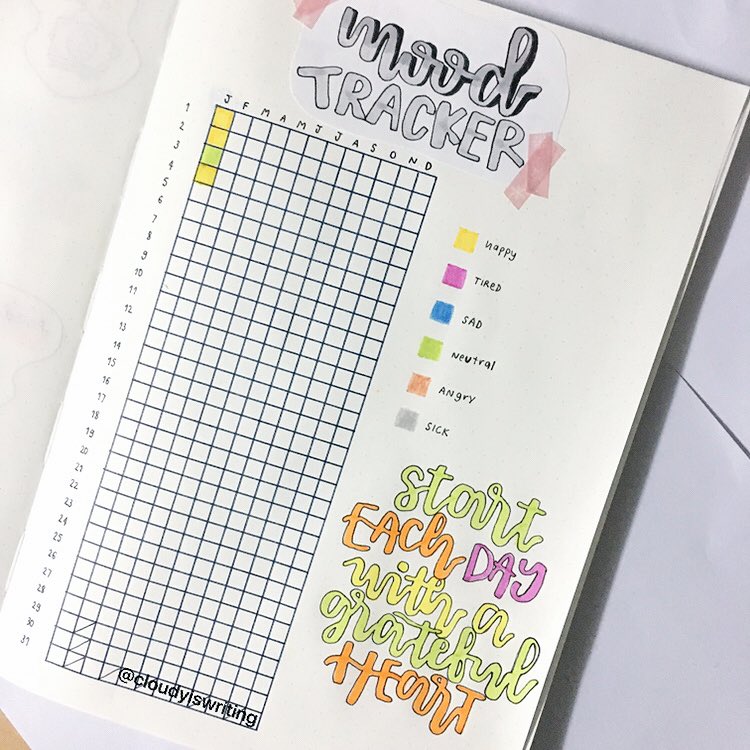 mood
TRACKER
J F M A M J J A S O N D
1
2
3
4
5
6
7
8
9
10
11
12
13
14
15
16
17
18
19
20
21
22
23
24
25
26
27
28
29
30
31
happy
TIRED
SAD
Neutral
ANGRY
SICK
start
EACH DAY
with a
grateful
HEART
@cloudyiswriting